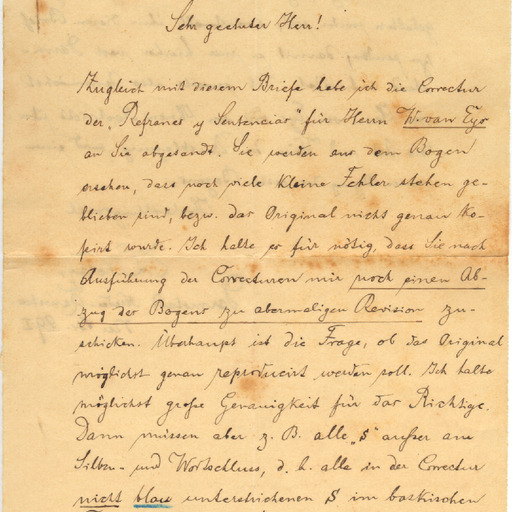 Sehr geehrter Herr!
Zugleich mit diesem Briefe habe ich die Correctur
der „Refranes y Sentencias“ für Herrn W. van Eys
an Sie abgesandt. Sie werden aus dem Bogen
ersehen, dass noch viele kleine Fehler stehen ge-
blieben sind, bezw. das Original nicht genau ko-
pirt wurde. Ich halte es für nötig, dass Sie nach
Ausführung der Correcturen mir noch einen Ab-
zug des Bogens zu abermaligen Revision zu-
schicken. Überhaupt ist die Frage, ob das Original
möglichst genau reproducirt werden soll. Ich halte
möglichst große Genauigkeit für das Richtige.
Dann müssen aber z. B. alle „s“ außer am
Silben- und Wortschluss, d. h. alle in der Correctur
nicht blau unterstrichenen s im baskischen